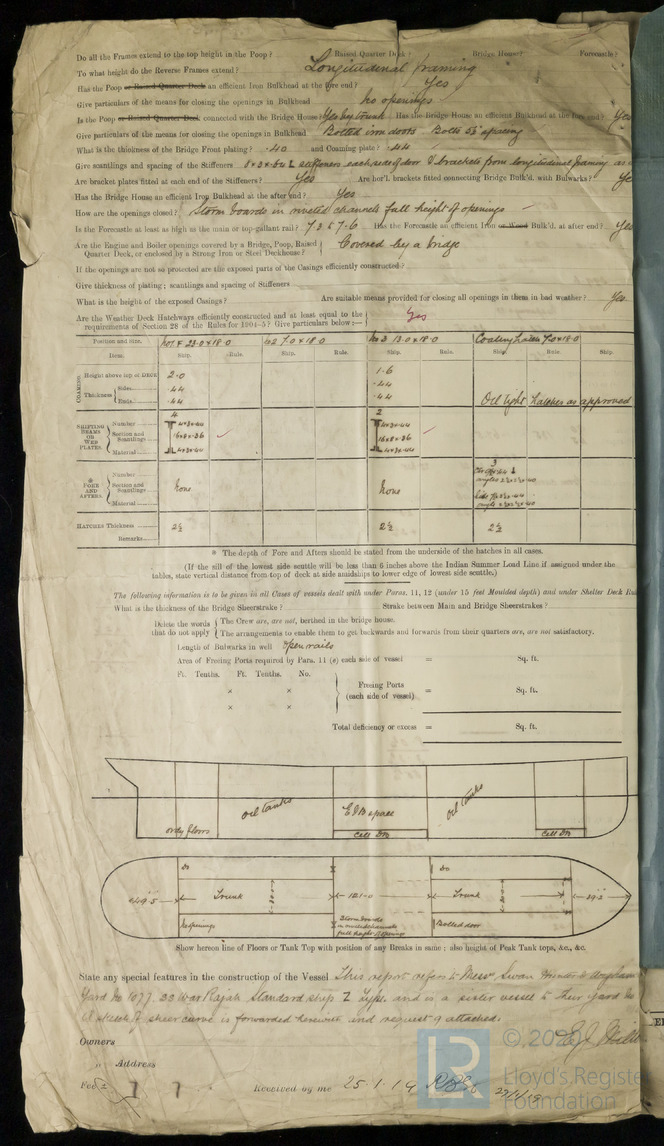 Do all the Frames extend to the top height in the Poop? Raised Quarter Deck? Bridge House? Forecastle?
To what height do the Reverse Frames extend? Longitudinal framing
Has the Poop or Raised Quarter Deck an efficient Iron Bulkhead at the fore end? Yes
Give particulars of the means for closing the openings in Bulkhead No openings
Is the Poop or Raised Quarter Deck connected with the Bridge House? Yes by trunk Has the Bridge House an efficient Bulkhead at the fore end? Yes
Give particulars of the means for closing the openings in Bulkhead Bolted iron doors Bolts spacing
What is the thickness of the Bridge Front plating? .40 and Coaming plate? .44
Give scantlings and spacing of the Stiffeners stiffeners each side of door & brackets from longitudinal framing as
Are bracket plates fitted at each end of the Stiffeners? Yes Are hor'l. brackets fitted connecting Bridge Bulk'd. with Bulwarks? Ye
Has the Bridge House an efficient Iron Bulkhead at the after end? Yes
How are the openings closed? Storm boards in riveted channels full height of openings
Is the Forecastle at least as high as the main or top-gallant rail? Has the Forecastle an efficient Iron or Wood Bulk'd. at after end? Yes
Are the Engine and Boiler openings covered by a Bridge, Poop, Raised Quarter Deck, or enclosed by a Strong Iron or Steel Deckhouse? Covered by a bridge
If the openings are not so protected are the exposed parts of the Casings efficiently constructed?
Give thickness of plating; scantlings and spacing of Stiffeners
What is the height of the exposed Casings? Are suitable means provided for closing all openings in them in bad weather? Yes.
Are the Weather Deck Hatchways efficiently constructed and at least equal to the requirements of Section 28 of the Rules for 1904-5? Give particulars below:— Yes
Position and size. No 1 & 23.0 x 18.0 No 2 7.0 x 18.0 No 3 13.0 x 18.0 Coaling hatch 7.0 x 18.0
Item. Ship. Rule. Ship. Rule. Ship. Rule. Ship. Rule. Ship.
COAMING Height above top of DECK 2.0 1.6
Thickness Sides .44 .44
Ends .44 .44 Oil tight hatches as approved
SHIFTING BEAMS OR WEB PLATES. Number 4 2
Section and Scantlings
Material
* FORE AND AFTERS. Number 3
Section and Scantlings None None
Material
HATCHES Thickness 2½ 2½ 2½
Remarks
* The depth of Fore and Afters should be stated from the underside of the hatches in all cases.
(If the sill of the lowest side scuttle will be less than 6 inches above the Indian Summer Load Line if assigned under the
tables, state vertical distance from top of deck at side amidships to lower edge of lowest side scuttle.)
The following information is to be given in all Cases of vessels dealt with under Paras. 11, 12 (under 15 feet Moulded depth) and under Shelter Deck Ru
What is the thickness of the Bridge Sheerstrake? Strake between Main and Bridge Sheerstrakes?
Delete the words that do not apply The Crew are, are not, berthed in the bridge house.
The arrangements to enable them to get backwards and forwards from their quarters are, are not satisfactory.
Length of Bulwarks in well Open rails
Area of Freeing Ports required by Para. 11 (e) each side of vessel = Sq. ft.
Ft. Tenths. Ft. Tenths. No.
× ×
× ×
Freeing Ports (each side of vessel) = Sq. ft.
Total deficiency or excess = Sq. ft.
only floors
Oil tanks
E & B space
Cell DB
Oil tanks
Cell DB
Do
Do
49.5
Trunk
121.0
Trunk
39.3
No openings
Storm boards
in riveted channels
full height of opening
Bolted door
Show hereon line of Floors or Tank Top with position of any Breaks in same; also height of Peak Tank tops, &c., &c.
State any special features in the construction of the Vessel This report refers to Messrs Swan Hunter & Wigham
Yard No 1077. SS War Rajah Standard ship Z type. and is a sister vessel to their Yard No
A sketch of sheer curve is forwarded herewith and request 9 attached.
Owners
" Address
Fee £
Received by me 25.1.19
© 2020
LR
Lloyd's Register
Foundation